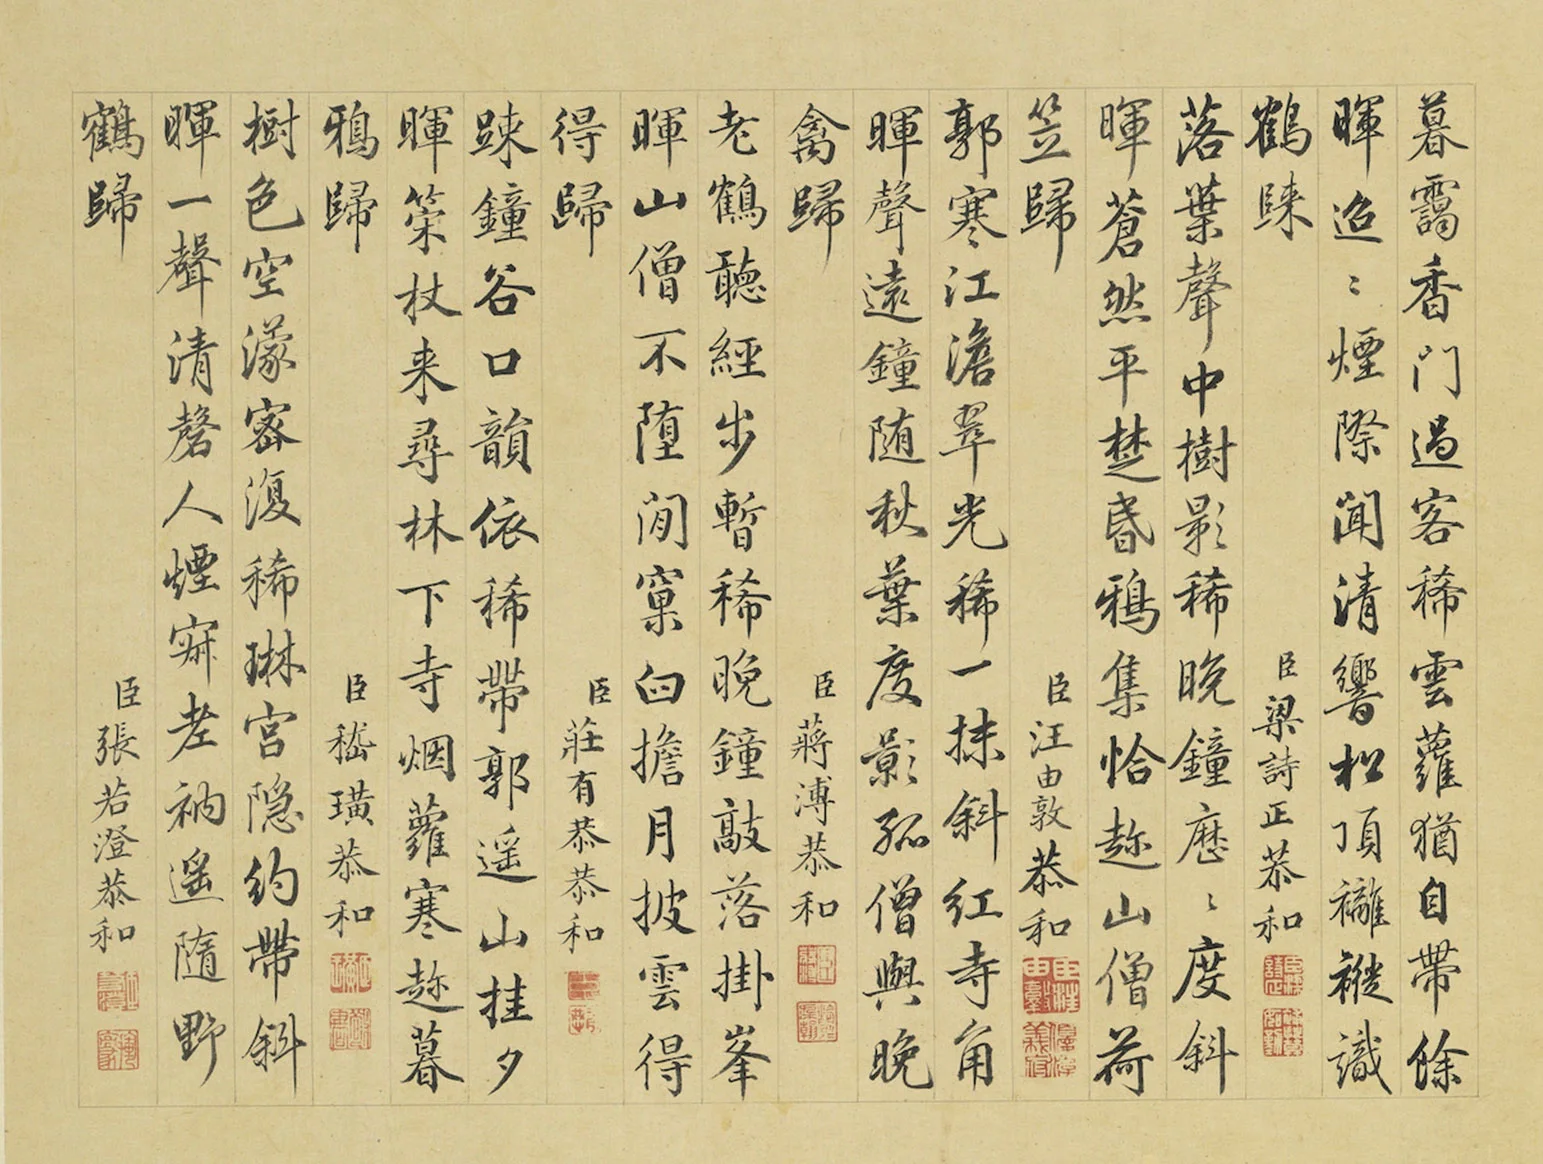 暮靄香門過客稀雲蘿猶自帶餘
暉迢〻煙際聞清響松頂褵褷識
鶴歸
臣梁詩正恭和
落葉聲中樹影稀晚鐘歷〻度斜
暉蒼然平楚昏鴉集恰趂山僧荷
笠歸
臣汪由敦恭和
郭寒江澹翠光稀一抹斜紅寺角
暉聲遠鐘随秋葉度影孤僧與晚
禽歸
臣蔣溥恭和
老鶴聽經步暫稀晚鐘敲落掛峯
暉山僧不墮閒窠臼擔月披雲得
得歸
臣莊有恭恭和
踈鐘谷口韻依稀帶郭遥山挂夕
暉策杖来尋林下寺烟蘿寒趂暮
鴉歸
臣嵇璜恭和
樹色空濛密復稀琳宮隐約帶斜
暉一聲清磬人煙寂老衲遥随野
鶴歸
臣張若澄恭和